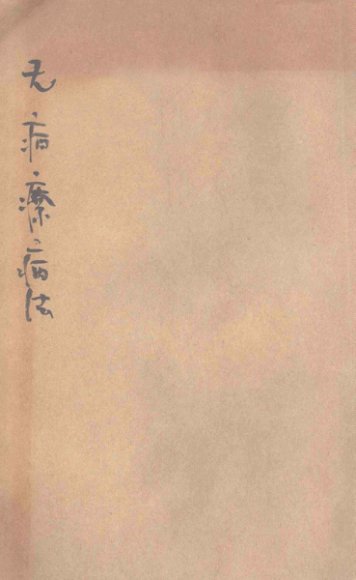 无病療病法